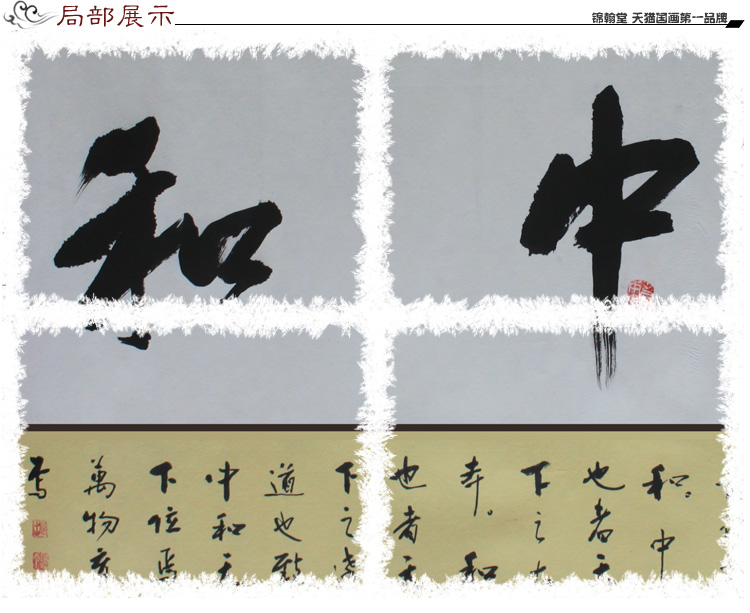 局部展示
锦翰堂 天猫国画第一品牌
中和
和。中
也者天
下之大
夲。和
也者天
下之達
道也致
中和天
下位焉
萬物育
焉